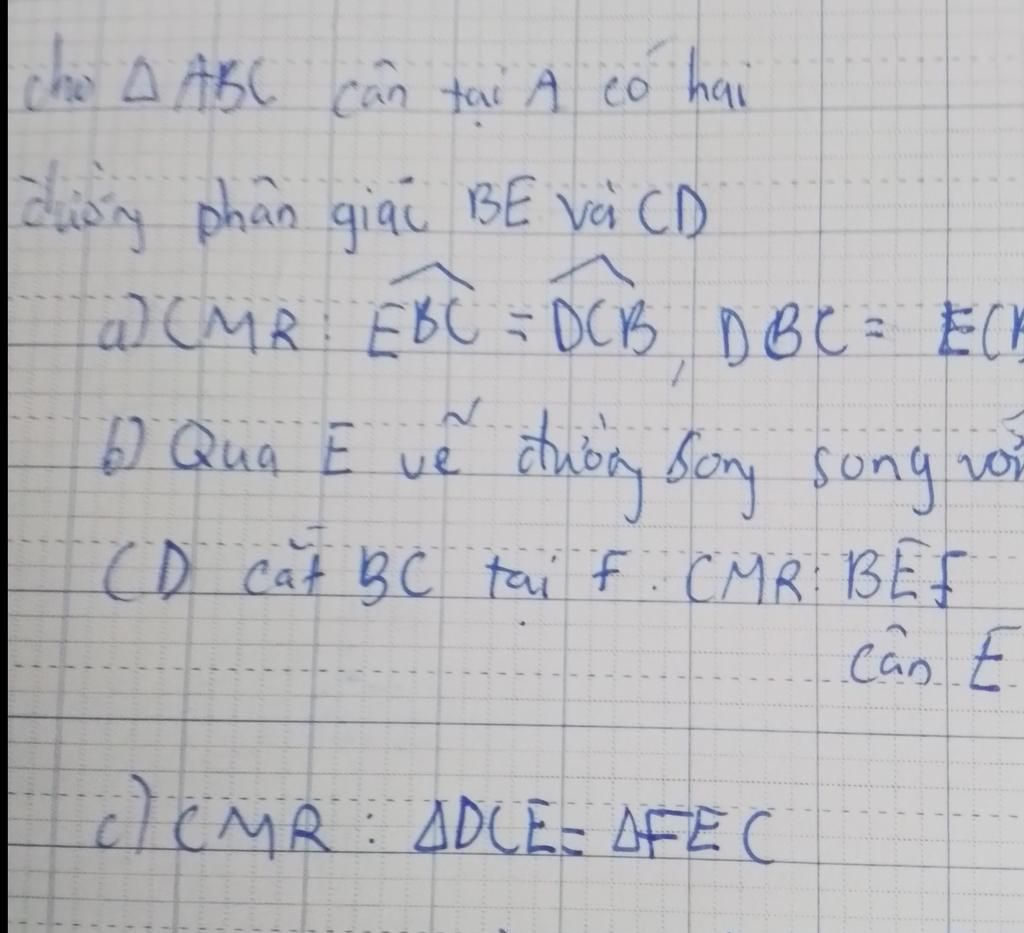 cho Δ ABC cân tại A có hai
đường phân giác BE và CD
a) CMR : \widehat{EBC} = \widehat{DCB}, DBC = EC
b) Qua E vẽ đường song song với
CD cắt BC tại F . CMR: BEF
cân E
c) CMR : ΔDCE = ΔFEC